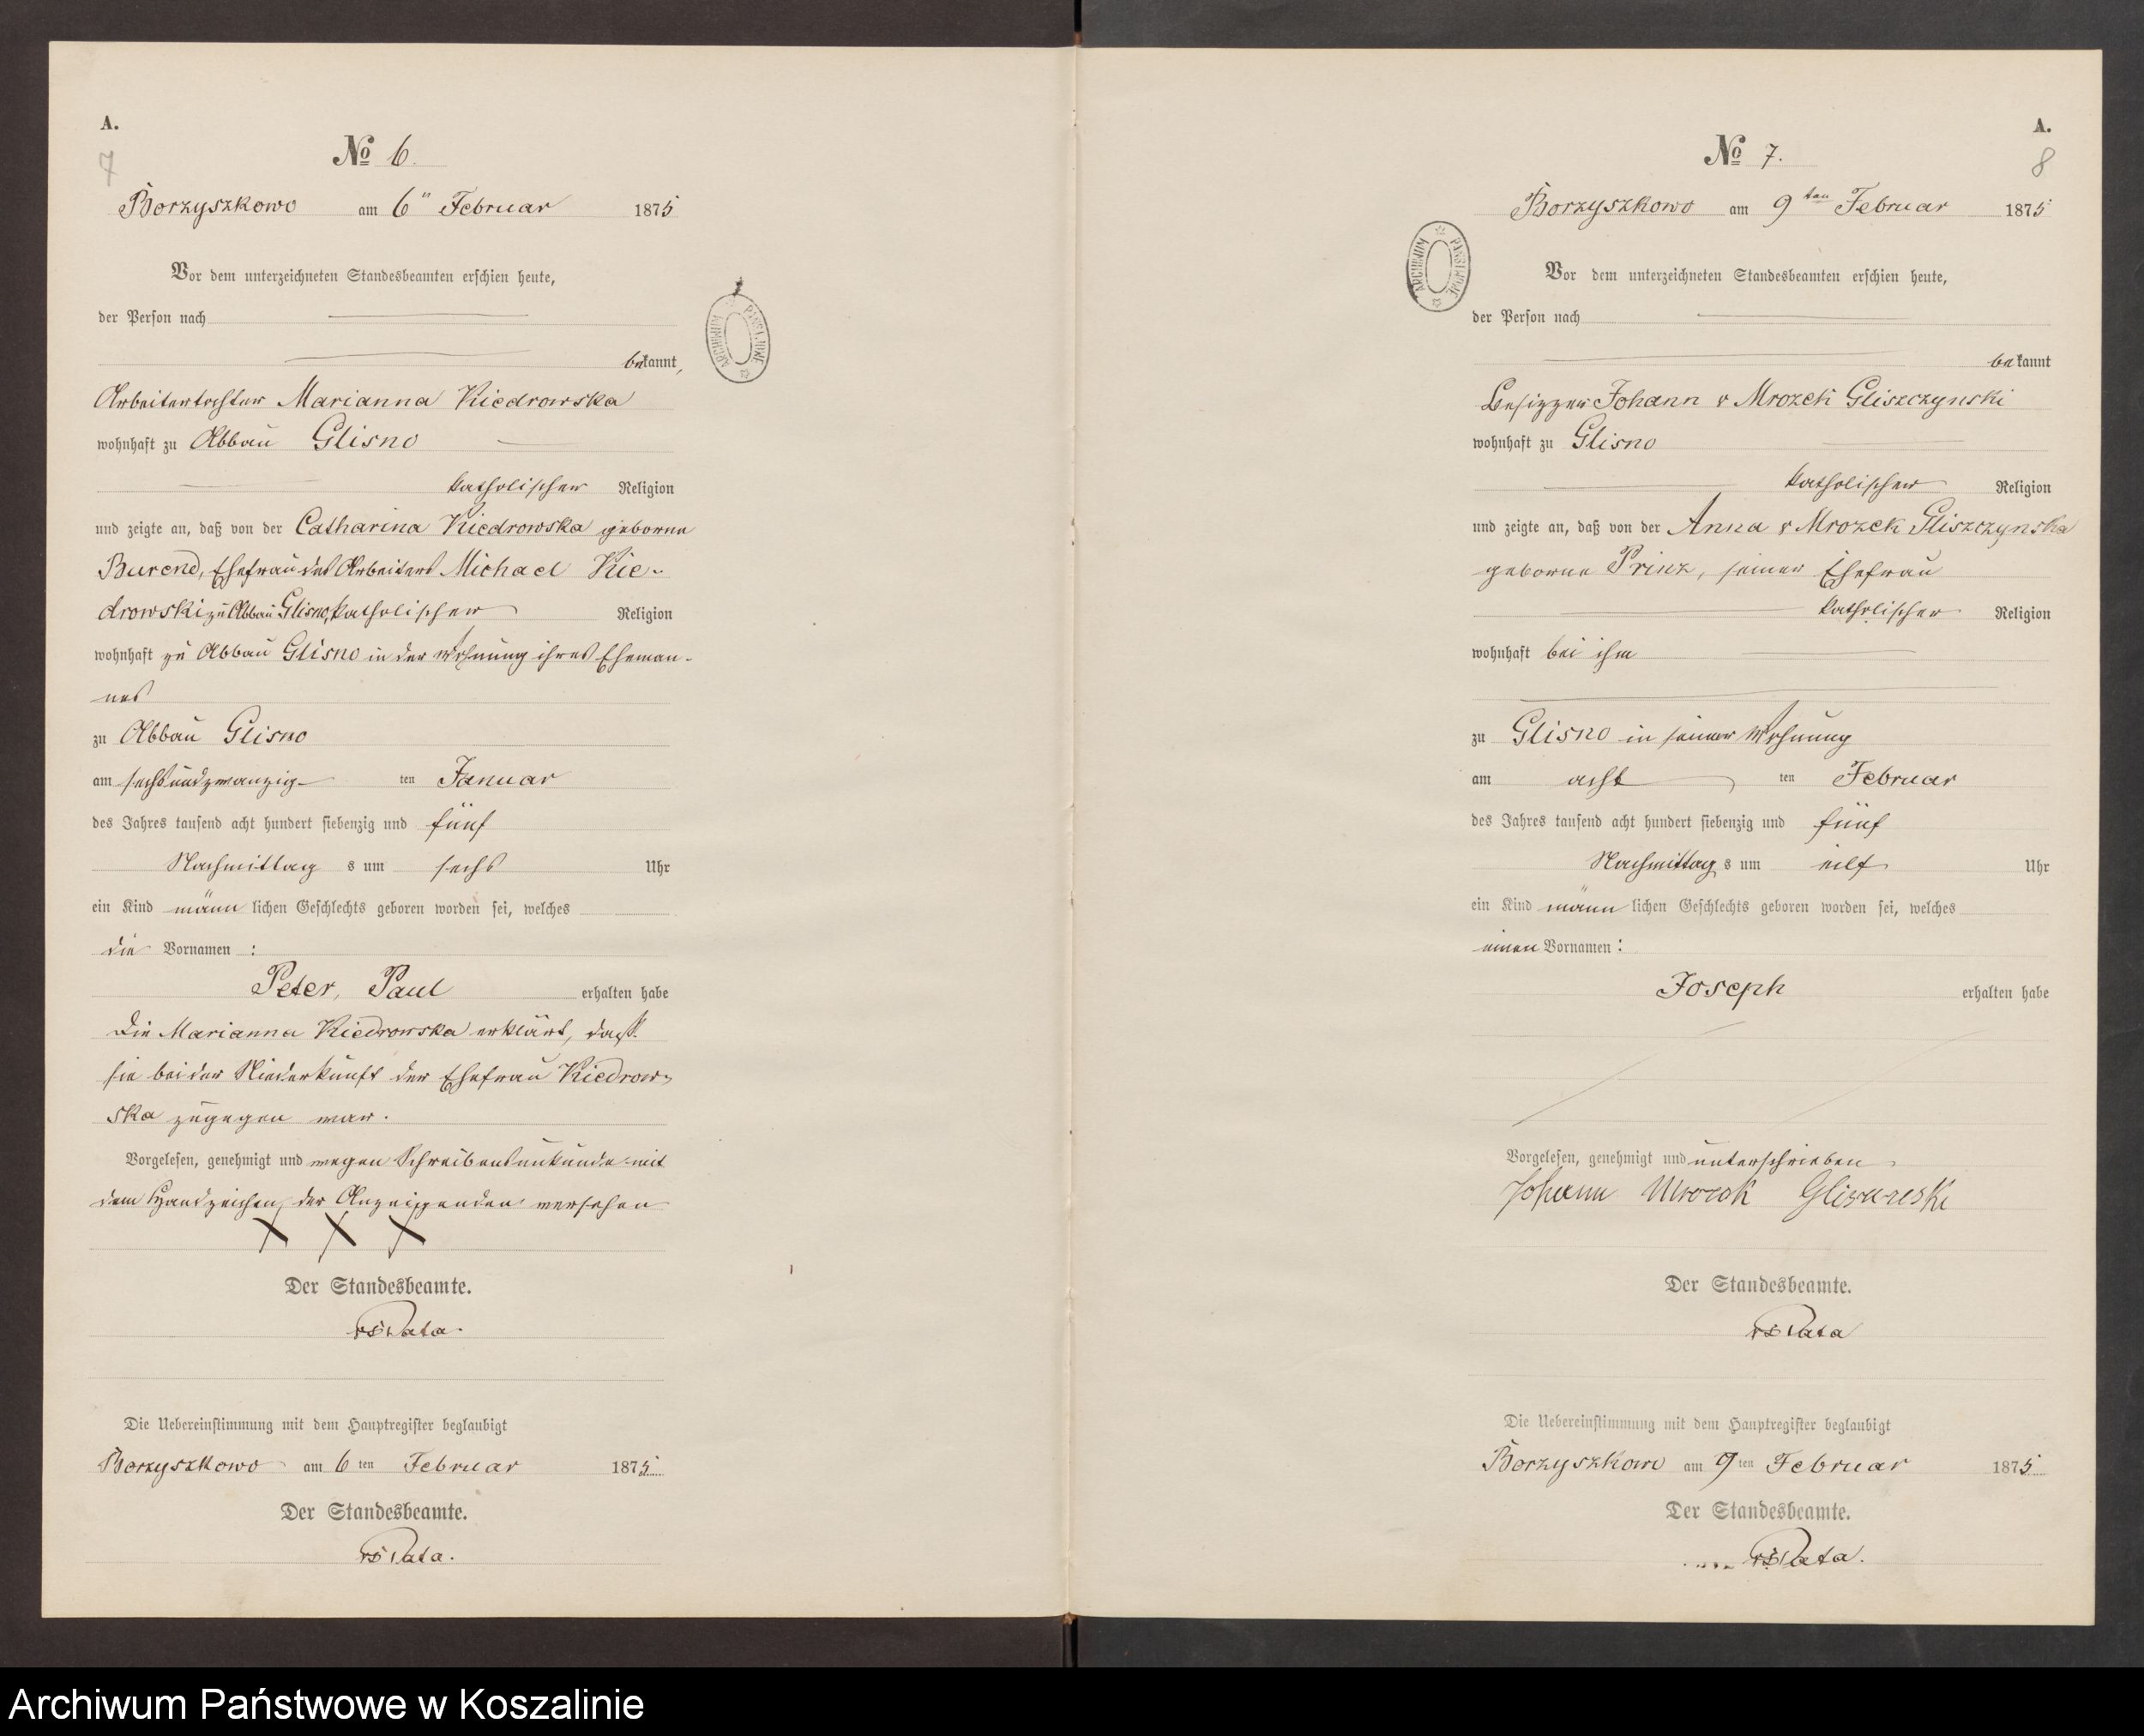 A.
7
No 6.
Borzyszkowo am 6ten Februar 1875
Vor dem unterzeichneten Standesbeamten erschien heute,
der Person nach
bekannt,
Arbeitertochter Marianna Kiedrowska
wohnhaft zu Abbau Glisno
katholischer Religion
und zeigte an, daß von der Catharina Kiedrowska geborne
Burend, Ehefrau des Arbeiters Michael Kie-
drowski zu Abbau Glisno, katholischer Religion
wohnhaft zu Abbau Glisno in der Wohnung ihres Eheman-
nes
zu Abbau Glisno
am sechsundzwanzig ten Januar
des Jahres tausend acht hundert siebenzig und fünf
Nachmittag s um sechs Uhr
ein Kind männ lichen Geschlechts geboren worden sei, welches
die Vornamen :
Peter, Paul erhalten habe
Die Marianna Kiedrowska erklärt, daß
sie bei der Niederkunft der Ehefrau Kiedrow-
ska zugegen war.
Vorgelesen, genehmigt und wegen Schreibensunkunde mit
dem Handzeichen der Anzeigenden versehen
X X X
Der Standesbeamte.
Die Uebereinstimmung mit dem Hauptregister beglaubigt
Borzyszkowo am 6 ten Februar 1875
Der Standesbeamte.
ARCHIWUM PAŃSTWOWE
A.
8
No 7.
Borzyszkowo am 9ten Februar 1875
Vor dem unterzeichneten Standesbeamten erschien heute,
der Person nach
bekannt
Besitzer Johann v Mrozek Gliszczynski
wohnhaft zu Glisno
katholischer Religion
und zeigte an, daß von der Anna v Mrozek Gliszczynska
geborne Prinz, seiner Ehefrau
katholischer Religion
wohnhaft bei ihm
zu Glisno in seiner Wohnung
am acht ten Februar
des Jahres tausend acht hundert siebenzig und fünf
Nachmittag s um eilf Uhr
ein Kind männ lichen Geschlechts geboren worden sei, welches
einen Vornamen :
Joseph erhalten habe
Vorgelesen, genehmigt und unterschrieben
Johann Mrozek
Der Standesbeamte.
Die Uebereinstimmung mit dem Hauptregister beglaubigt
Borzyszkowo am 9 ten Februar 1875
Der Standesbeamte.
ARCHIWUM PAŃSTWOWE
Archiwum Państwowe w Koszalinie